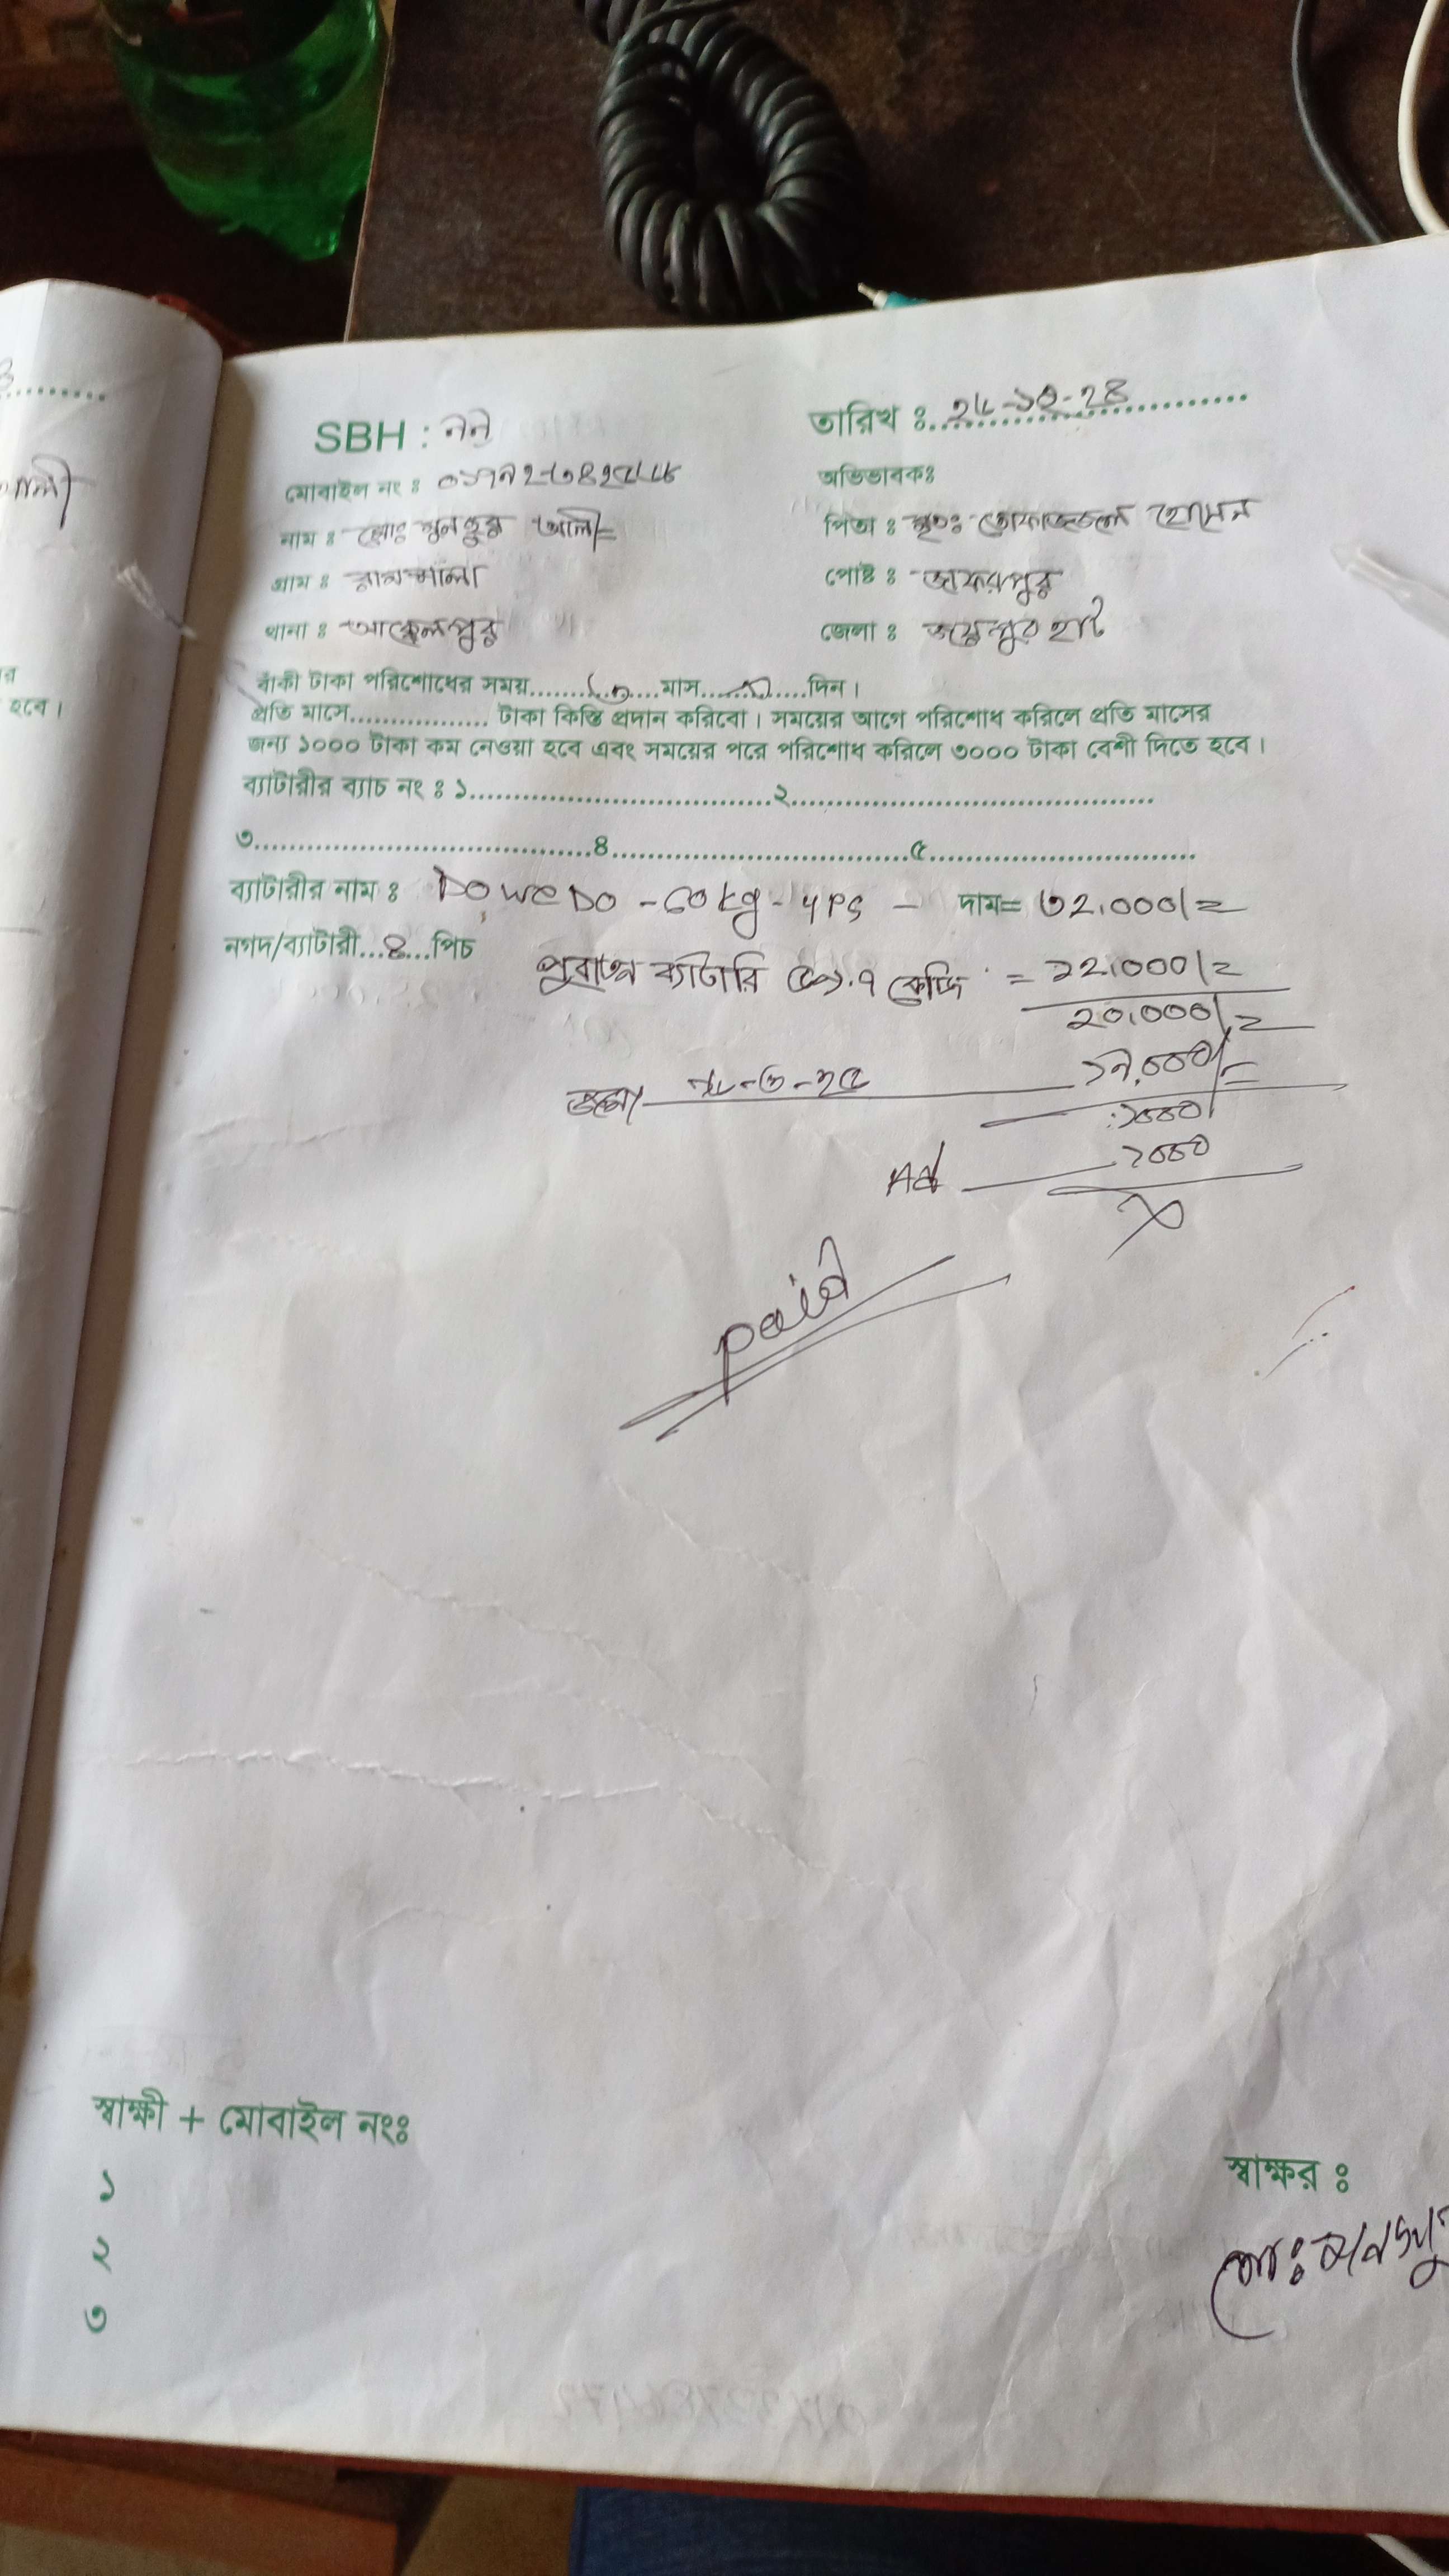 SBH : ৯৯
তারিখ ঃ
মোবাইল নং ঃ
অভিভাবকঃ
নাম ঃ মোঃ মুনছুর আলী
পিতা ঃ মৃতঃ তোফাজ্জল হোসেন
গ্রাম ঃ রামশালা
পোষ্ট ঃ জাফরপুর
থানা ঃ আক্কেলপুর
জেলা ঃ জয়পুর হাট
বাঁকী টাকা পরিশোধের সময়..........মাস..........দিন।
প্রতি মাসে................ টাকা কিস্তি প্রদান করিবো। সময়ের আগে পরিশোধ করিলে প্রতি মাসের
জন্য ১০০০ টাকা কম নেওয়া হবে এবং সময়ের পরে পরিশোধ করিলে ৩০০০ টাকা বেশী দিতে হবে।
ব্যাটারীর ব্যাচ নং ঃ ১..........২..........
৩..........৪..........৫..........
ব্যাটারীর নাম ঃ DOWEDO - 60kg - 4PS - দাম= ৩২,০০০/=
নগদ/ব্যাটারী...৪...পিচ
পুরাতন ব্যাটারি ৫১.৭ কেজি = ১২,০০০/=
২০,০০০/=
জমা ১৯,০০০/=
১০০০/
Ad ১০০০
paid
স্বাক্ষী + মোবাইল নংঃ
১
২
৩
স্বাক্ষর ঃ
মোঃ